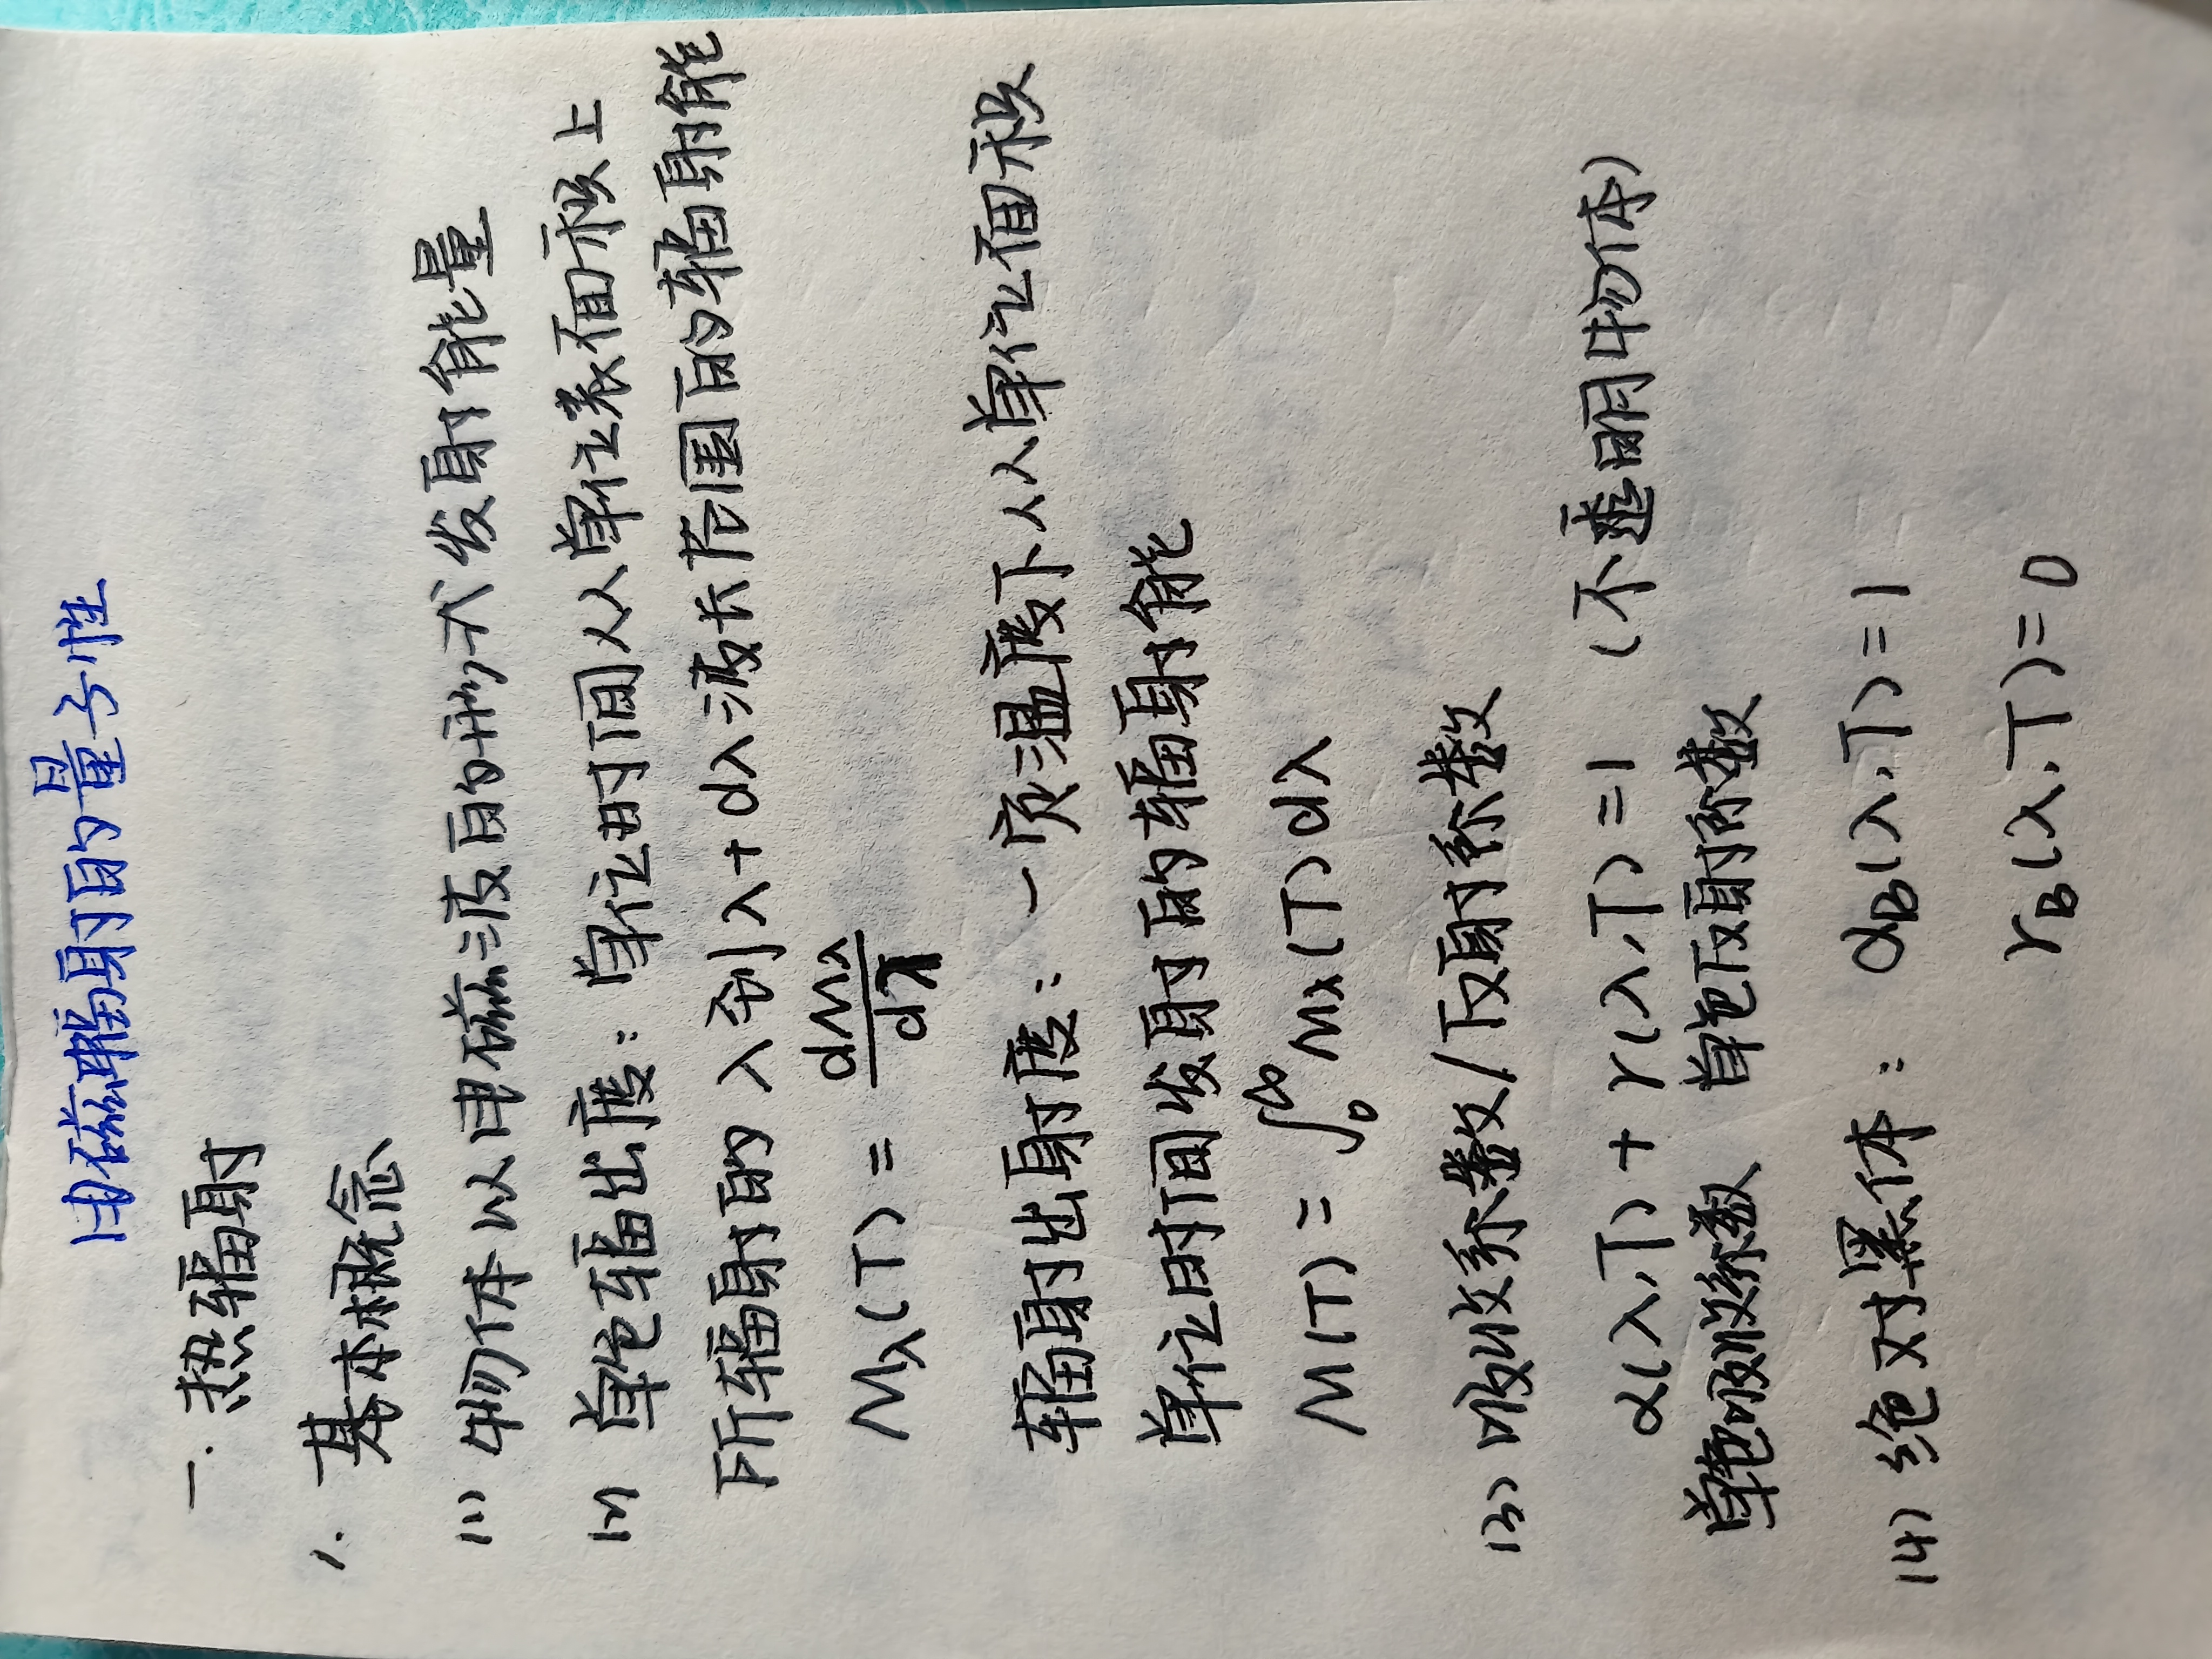 电磁辐射的量子性
一. 热辐射
1. 基本概念
(1) 物体以电磁波的形式发射能量
(2) 单色辐出度: 单位时间从单位表面积上
所辐射的 λ到λ+dλ波长范围的辐射能
Mλ(T) = dMλ/dλ
辐射出射度: 一定温度下从单位面积
单位时间发射的辐射能
M(T) = ∫₀^∞ Mλ(T)dλ
(3) 吸收系数/反射系数
α(λ,T) + r(λ,T) = 1 (不透明物体)
单色吸收系数 单色反射系数
(4) 绝对黑体: αB(λ,T) = 1
rB(λ,T) = 0